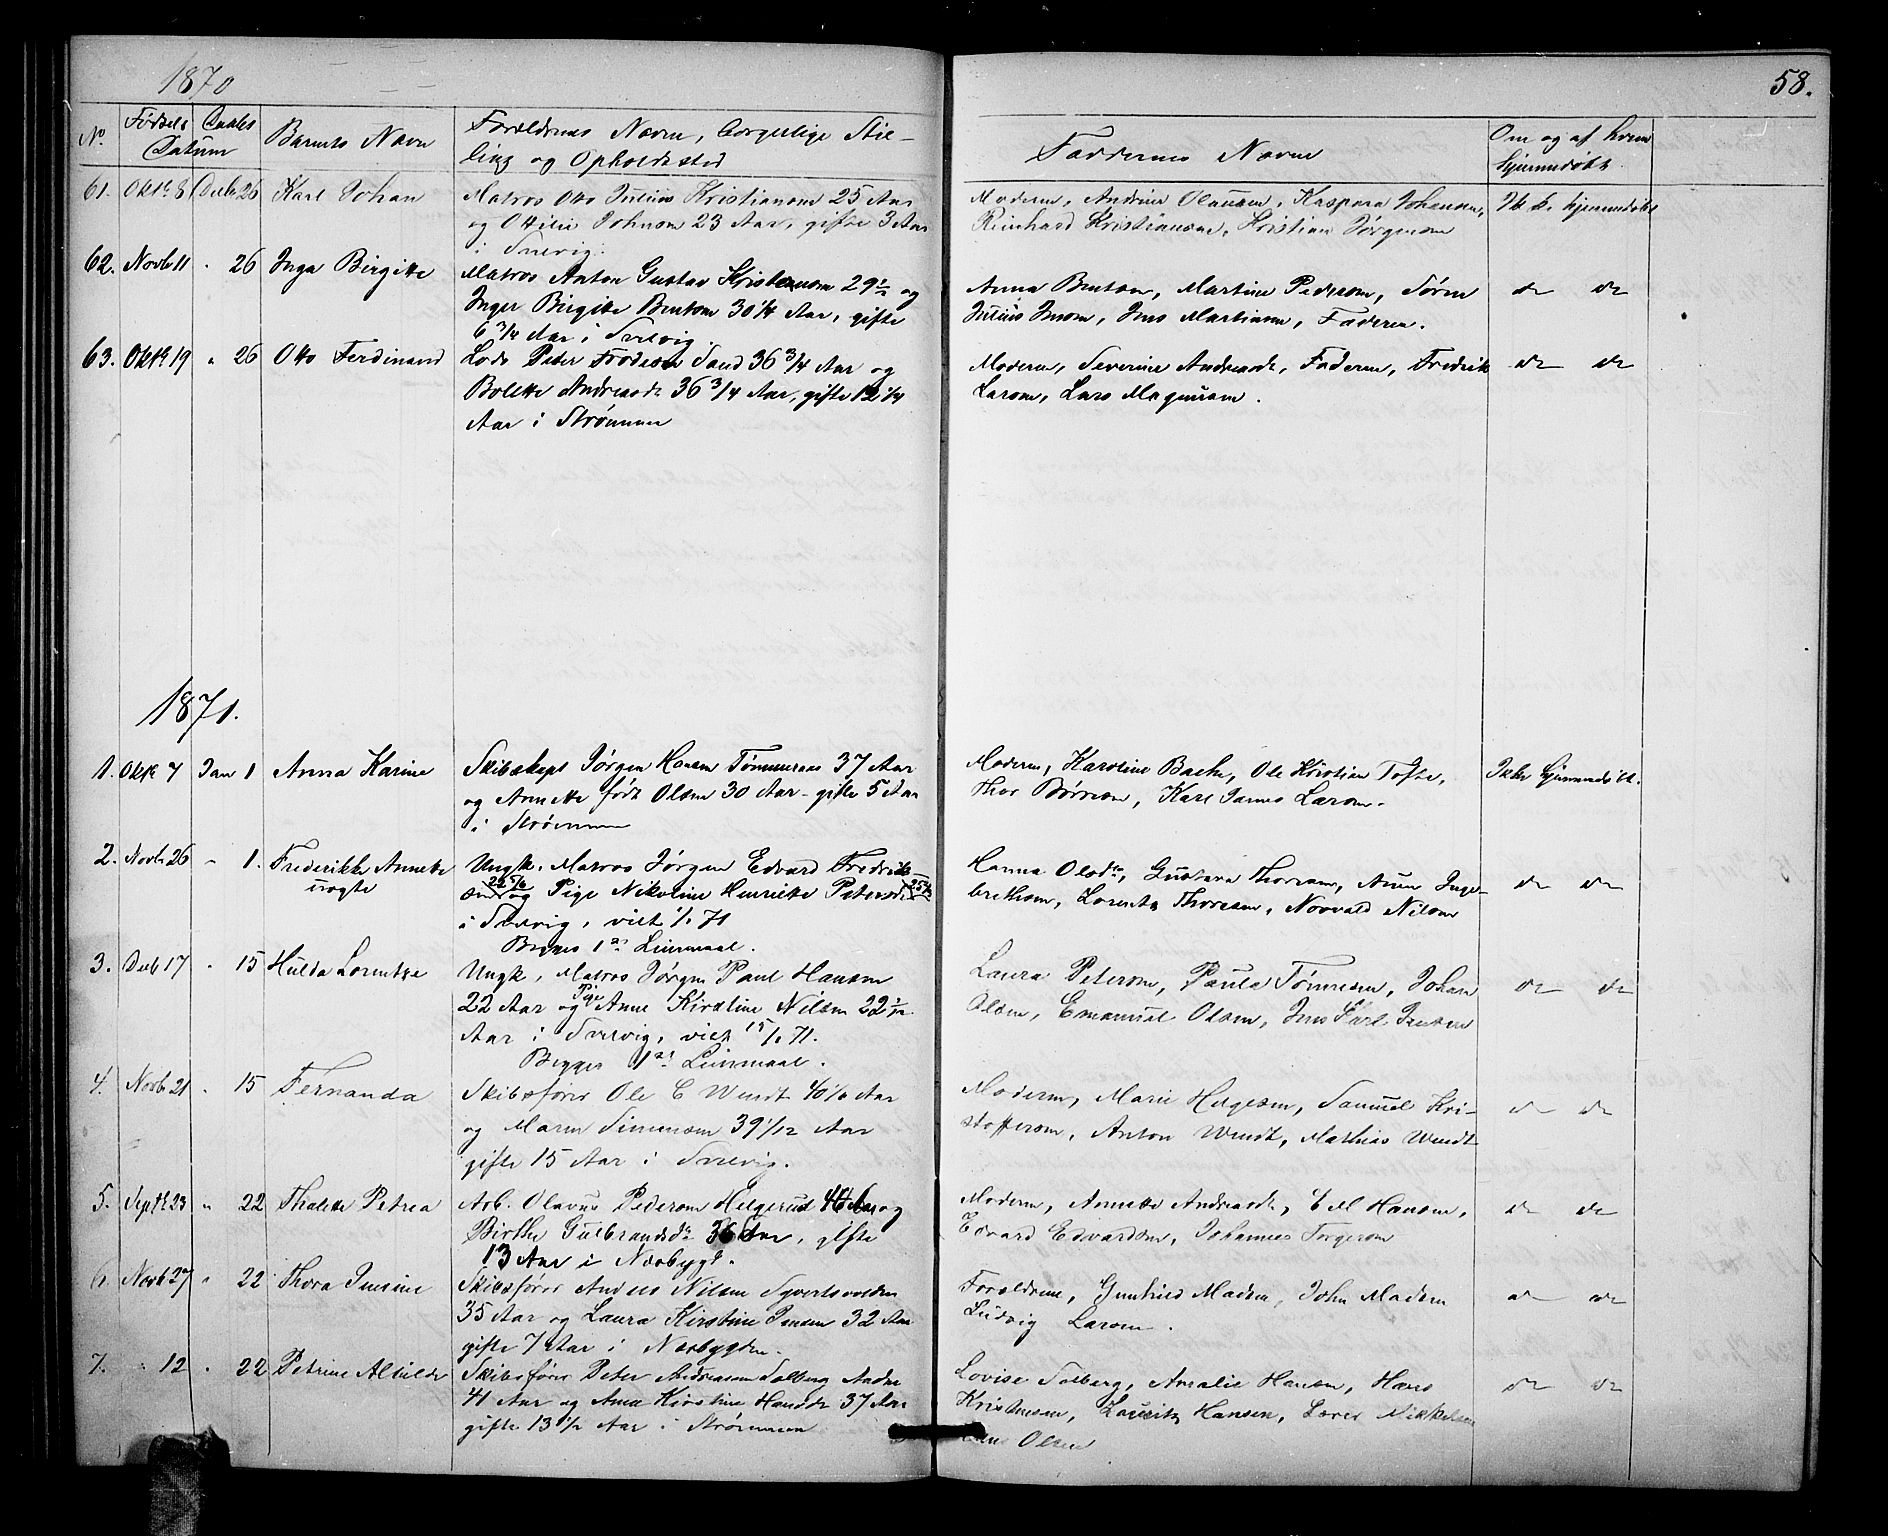 1870
58.
No. Fødsels Daabs Datum Barnets Navn Forældrenes Navne, borgerlige Stil-
ling og Opholdssted
Faddernes Navne
Om og af hvem
hjemmedøbt.
61. Oktbr 8 Decbr 26 Karl Johan Matros Otto Julius Kristiansen 25 Aar
og Ottilie Johnsen 23 Aar, gifte 3 Aar
i Svelvig.
Moderen, Andrine Olaussen, Kaspara Johansen,
Reinhard Kristiansen, Kristian Jørgensen
Ik. b. hjemmedøbt
62. Novbr 11 " 26 Inga Birgitte Matros Anton Gustav Kristensen 29 1/2 og
Inger Birgitte Bentsen 30 1/4 Aar, gifte
6 3/4 Aar i Svelvig
Anna Bentsen, Martine Pedersen, Søren
Julius Jensen, Jens Martinsen, Faderen.
do do
63. Oktbr 19 " 26 Otto Ferdinand Lods Peter Sand 36 3/4 Aar og
Bolette Andreasdr 36 3/4 Aar, gifte 12 1/4
Aar i Strømmen
Moderen, Severine Andreasdr, Faderen, Fredrik
Larsen, Lars Magnussen.
do do
1871.
1. Oktbr 7 Jan 1 Anna Karine Skibskapt Jørgen Hansen Tømmeraas 37 Aar
og Annette født Olsen 30 Aar - gifte 5 Aar
i Strømmen
Moderen, Karoline Bache, Ole Kristian Tofte,
Thor Børresen, Karl James Larsen.
Ikke hjemmedøbt.
2. Novbr 26 " 1. Frederikke Annette Ungk. Matros Jørgen Edvard Fredrik-
uægte
sen 22 5/6 og Pige Nikoline Henriette Petersdr 25 1/2
i Svelvig, viet 1/1 71
Begges 1ste Leiermaal.
Hanna Olsdtr, Gustava Thoresen, Aven Inge-
brethsen, Lorents Thoresen, Norvald Nilsen
do do
3. Decbr 17 " 15 Hulda Lorentze Ungk. Matros Jørgen Paul Hansen
22 Aar og Pige Anne Kirstine Nilsen 22 1/12
Aar i Svelvig, viet 15/1 71.
Begges 1ste Leiermaal.
Laura Petersen, Paule Tønnesen, Johan
Olsen, Emanuel Olsen, Jens Karl Jensen
do do
4. Novbr 21 " 15 Fernanda Skibsfører Ole C Wendt 40 1/6 Aar
og Maren Simensen 39 1/12 Aar
gifte 15 Aar i Svelvig.
Moderen, Marie Helgesen, Samuel Kri-
stoffersen, Anton Wendt, Mathias Wendt
do do
5. Septbr 23 " 22 Thalette Petrea Arb. Olavus Pedersen Helgerud 44 Aar og
Birthe Gulbrandsdr 36 Aar, gifte
13 Aar i Nesbygd.
Moderen, Annette Andreasdr, E M Hansen,
Edvard Edvardsen, Johannes Torgersen
do do
6. Novbr 27 " 22 Thora Jensine Skibsfører Anders Nilsen Syvertsvolden
35 Aar og Laura Kirstine Jensen 32 Aar
gifte 7 Aar i Nesbygden.
Forældrene, Gunhild Madsen, John Madsen
Ludvig Larsen.
do do
7. " 12 " 22 Petrine Alvilde Skibsfører Peter Andreassen Solberg
41 Aar og Anna Kirstine Hansdr 37 Aar
gifte 13 1/2 Aar i Strømmen
Lovise Solberg, Amalie Hansen, Hans
Kristensen, Lauritz Hansen, Mikkelsen
Olsen
do do